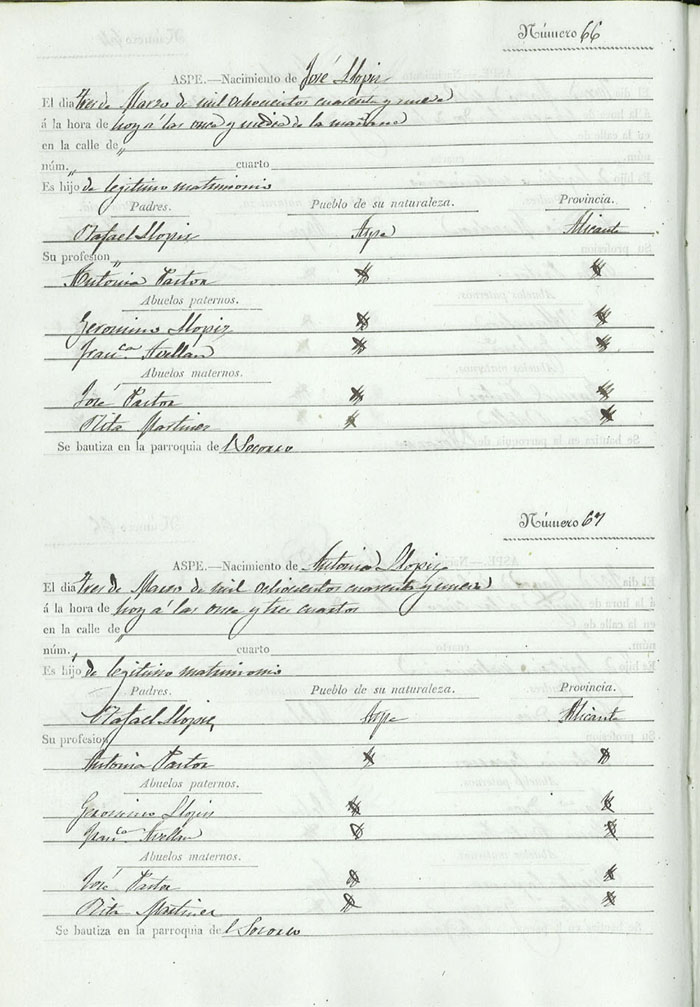 Número 66
ASPE.—Nacimiento de José Llopis
El dia tres de Marzo de mil ochocientos cuarenta y nueve
á la hora de hoy á las once y media de la mañana
en la calle de "
núm. " cuarto
Es hijo de legitimo matrimonio
Padres. Pueblo de su naturaleza. Provincia.
Rafael Llopis Aspe Alicante
Su profesion "
Antonia Pastor
Abuelos paternos.
Geronimo Llopis
Franca Avellan
Abuelos maternos.
José Pastor
Rita Martinez
Se bautiza en la parroquia del Socorro
Número 67
ASPE.—Nacimiento de Antonia Llopis
El dia tres de Marzo de mil ochocientos cuarenta y nueve
á la hora de hoy á las once y tres cuartos
en la calle de "
núm. " cuarto
Es hijo de legitimo matrimonio
Padres. Pueblo de su naturaleza. Provincia.
Rafael Llopis Aspe Alicante
Su profesion
Antonia Pastor
Abuelos paternos.
Geronimo Llopis
Franca Avellan
Abuelos maternos.
José Pastor
Rita Martinez
Se bautiza en la parroquia de l Socorro